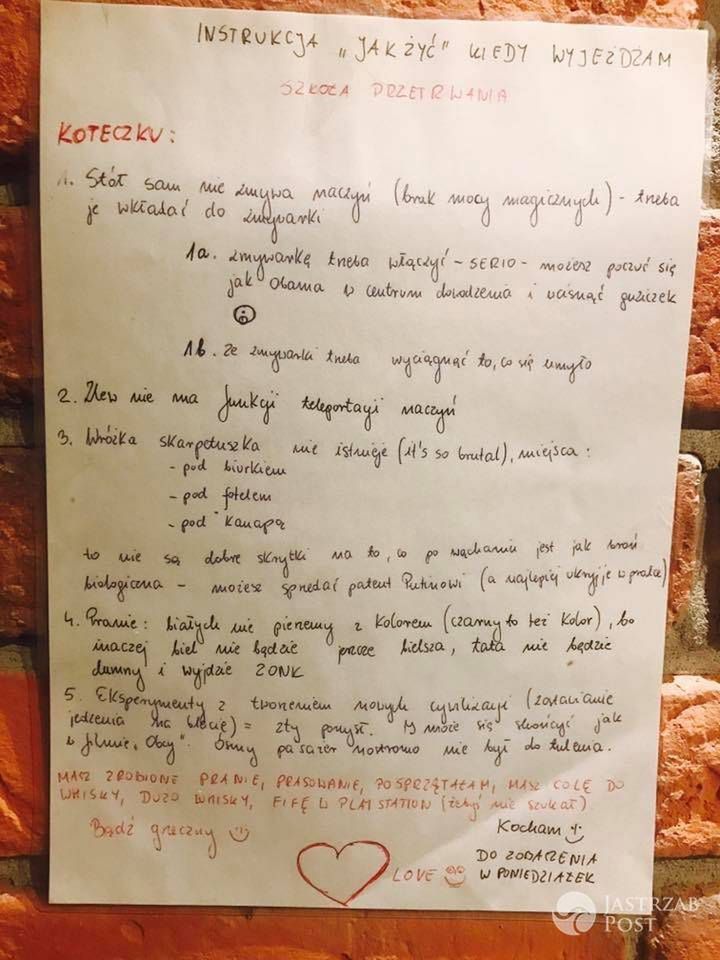 INSTRUKCJA „JAK ŻYĆ" KIEDY WYJEŻDŻAM
SZKOŁA PRZETRWANIA
KOTECZKU:
1. Stół sam nie zmywa naczyń (brak mocy magicznych) - trzeba
je wkładać do zmywarki
1a. zmywarkę trzeba włączyć - SERIO - możesz poczuć się
jak Obama w centrum dowodzenia i wcisnąć guziczek
1b. ze zmywarki trzeba wyciągnąć to, co się umyło
2. Zlew nie ma funkcji teleportacji naczyń
3. Wróżka skarpetuszka nie istnieje (it's so brutal), miejsca:
- pod biurkiem
- pod fotelem
- pod kanapą
to nie są dobre skrytki na to, co po wąchaniu jest jak broń
biologiczna - możesz sprzedać patent Putinowi (a najlepiej ukryj je w pralce)
4. Pranie: białych nie pierzemy z kolorem (czarny to też kolor), bo
inaczej biel nie będzie jeszcze bielsza, tata nie będzie
dumny i wyjdzie ZONK
5. Eksperymenty z tworzeniem nowych cywilizacji (zostawianie
jedzenia na blacie) = zły pomysł. M może się skończyć jak
w filmie „Obcy". Ósmy pasażer nostromo nie był do tulenia.
MASZ ZROBIONE PRANIE, PRASOWANIE, POSPRZĄTAŁAM, MASZ COLĘ DO
WHISKY, DUŻO WHISKY, FIFĘ W PLAYSTATION (żebyś nie szukał)
Bądź grzeczny
Kocham
LOVE
DO ZOBACZENIA
W PONIEDZIAŁEK
JASTRZĄB
POST